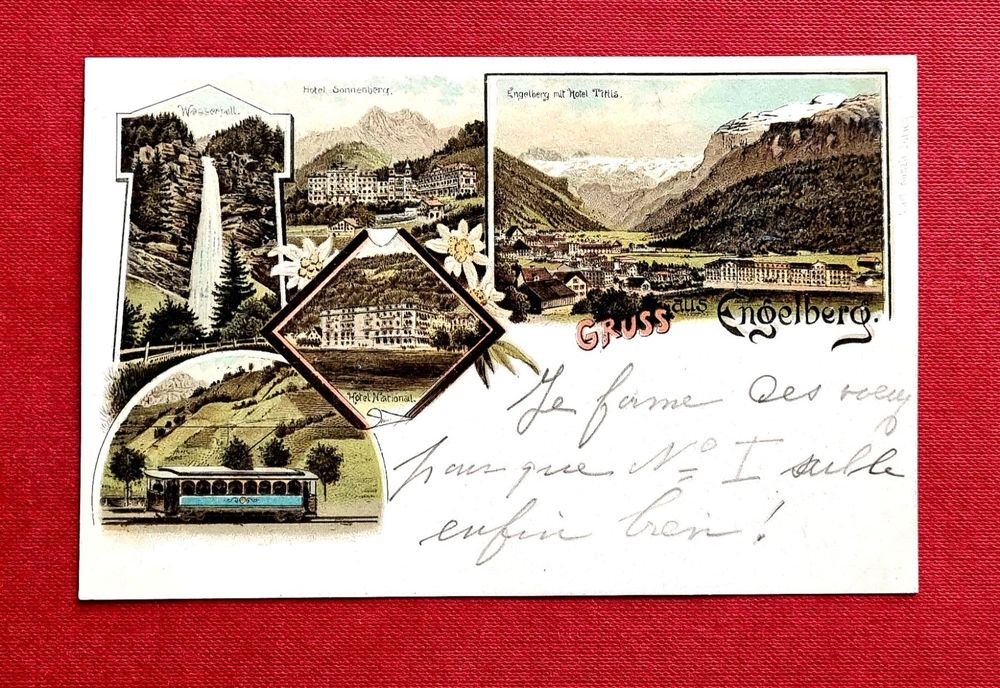 Wasserfall.
Hotel Sonnenberg.
Engelberg mit Hotel Titlis.
Hotel National.
GRUSS aus Engelberg.
Je forme des voeux
pour que No I
enfin bien !